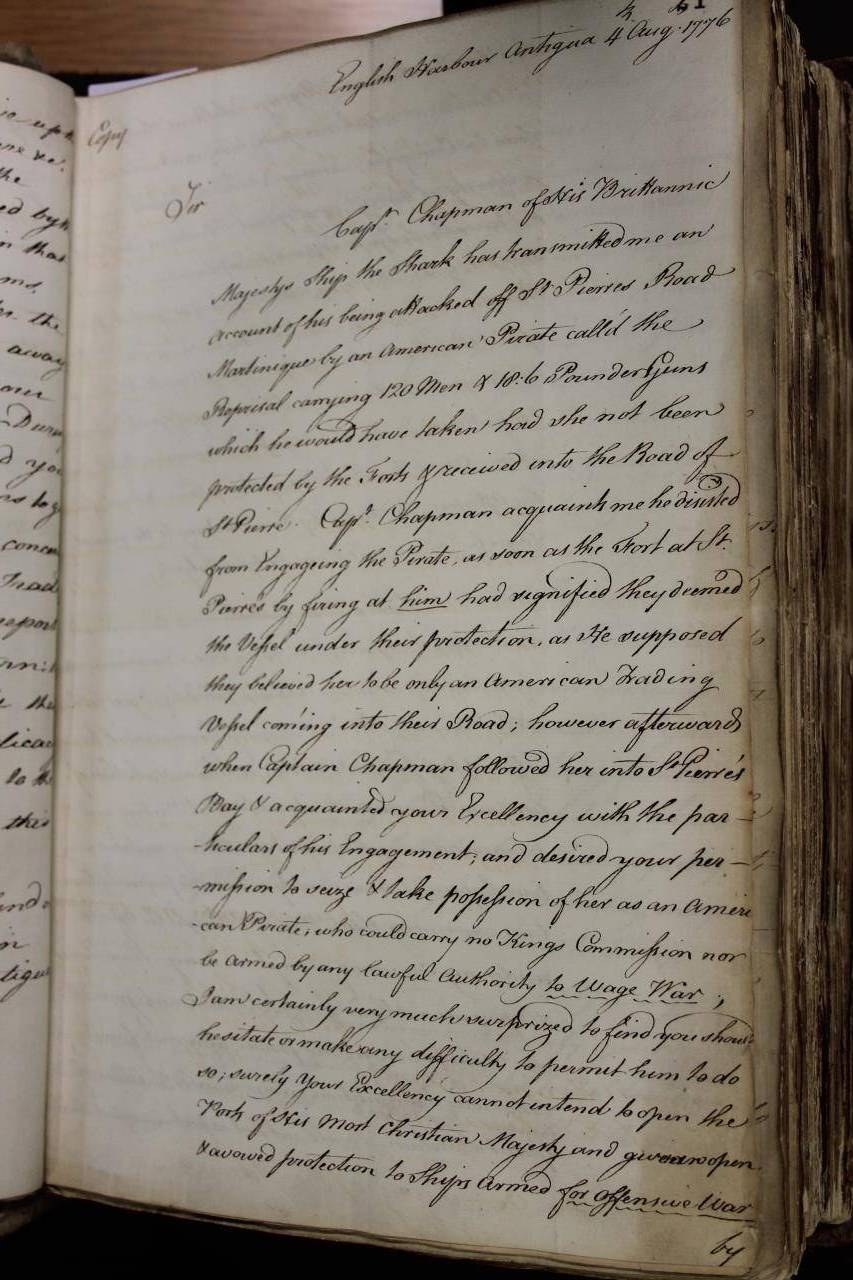 English Harbour Antigua 4 Aug. 1776
Copy
Sir
Capt. Chapman of His Brittannic
Majestys Ship the Shark has transmitted me an
account of his being attacked off St Pierres Road
Martinique by an American Pirate call'd the
Reprisal carrying 120 Men & 18: 6 Pounder Guns
which he would have taken had she not been
protected by the Forts & received into the Road of
St Pierre. Capt. Chapman acquaints me he disisted
from Engageing the Pirate, as soon as the Fort at St.
Pierre's by firing at him had signified they deemed
the Vessel under their protection, as He supposed
they believed her to be only an American Trading
Vessel coming into their Road; however afterwards
when Captain Chapman followed her into St Pierre's
Bay & acquainted your Excellency with the par-
-ticulars of his Engagement, and desired your per-
-mission to seize & take possession of her as an Ameri
-can Pirate, who could carry no Kings Commission nor
be armed by any lawful Authority to Wage War;
I am certainly very much surprized to find you should
hesitate or make any difficulty to permit him to do
so; surely your Excellency cannot intend to open the
Ports of His most Christian Majesty and give open
& avowed protection to Ships armed for offensive War
by